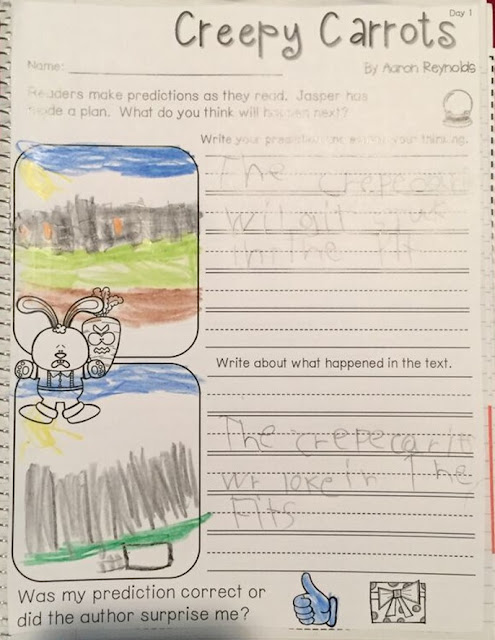 Day 1
Creepy Carrots
Name:
By Aaron Reynolds
Readers make predictions as they read. Jasper has
made a plan. What do you think will happen next?
Write your prediction and explain your thinking.
The crepecarit
wil git stuk
in the fit
Write about what happened in the text.
The crepecarits
wr loke in The
Fits
Was my prediction correct or
did the author surprise me?